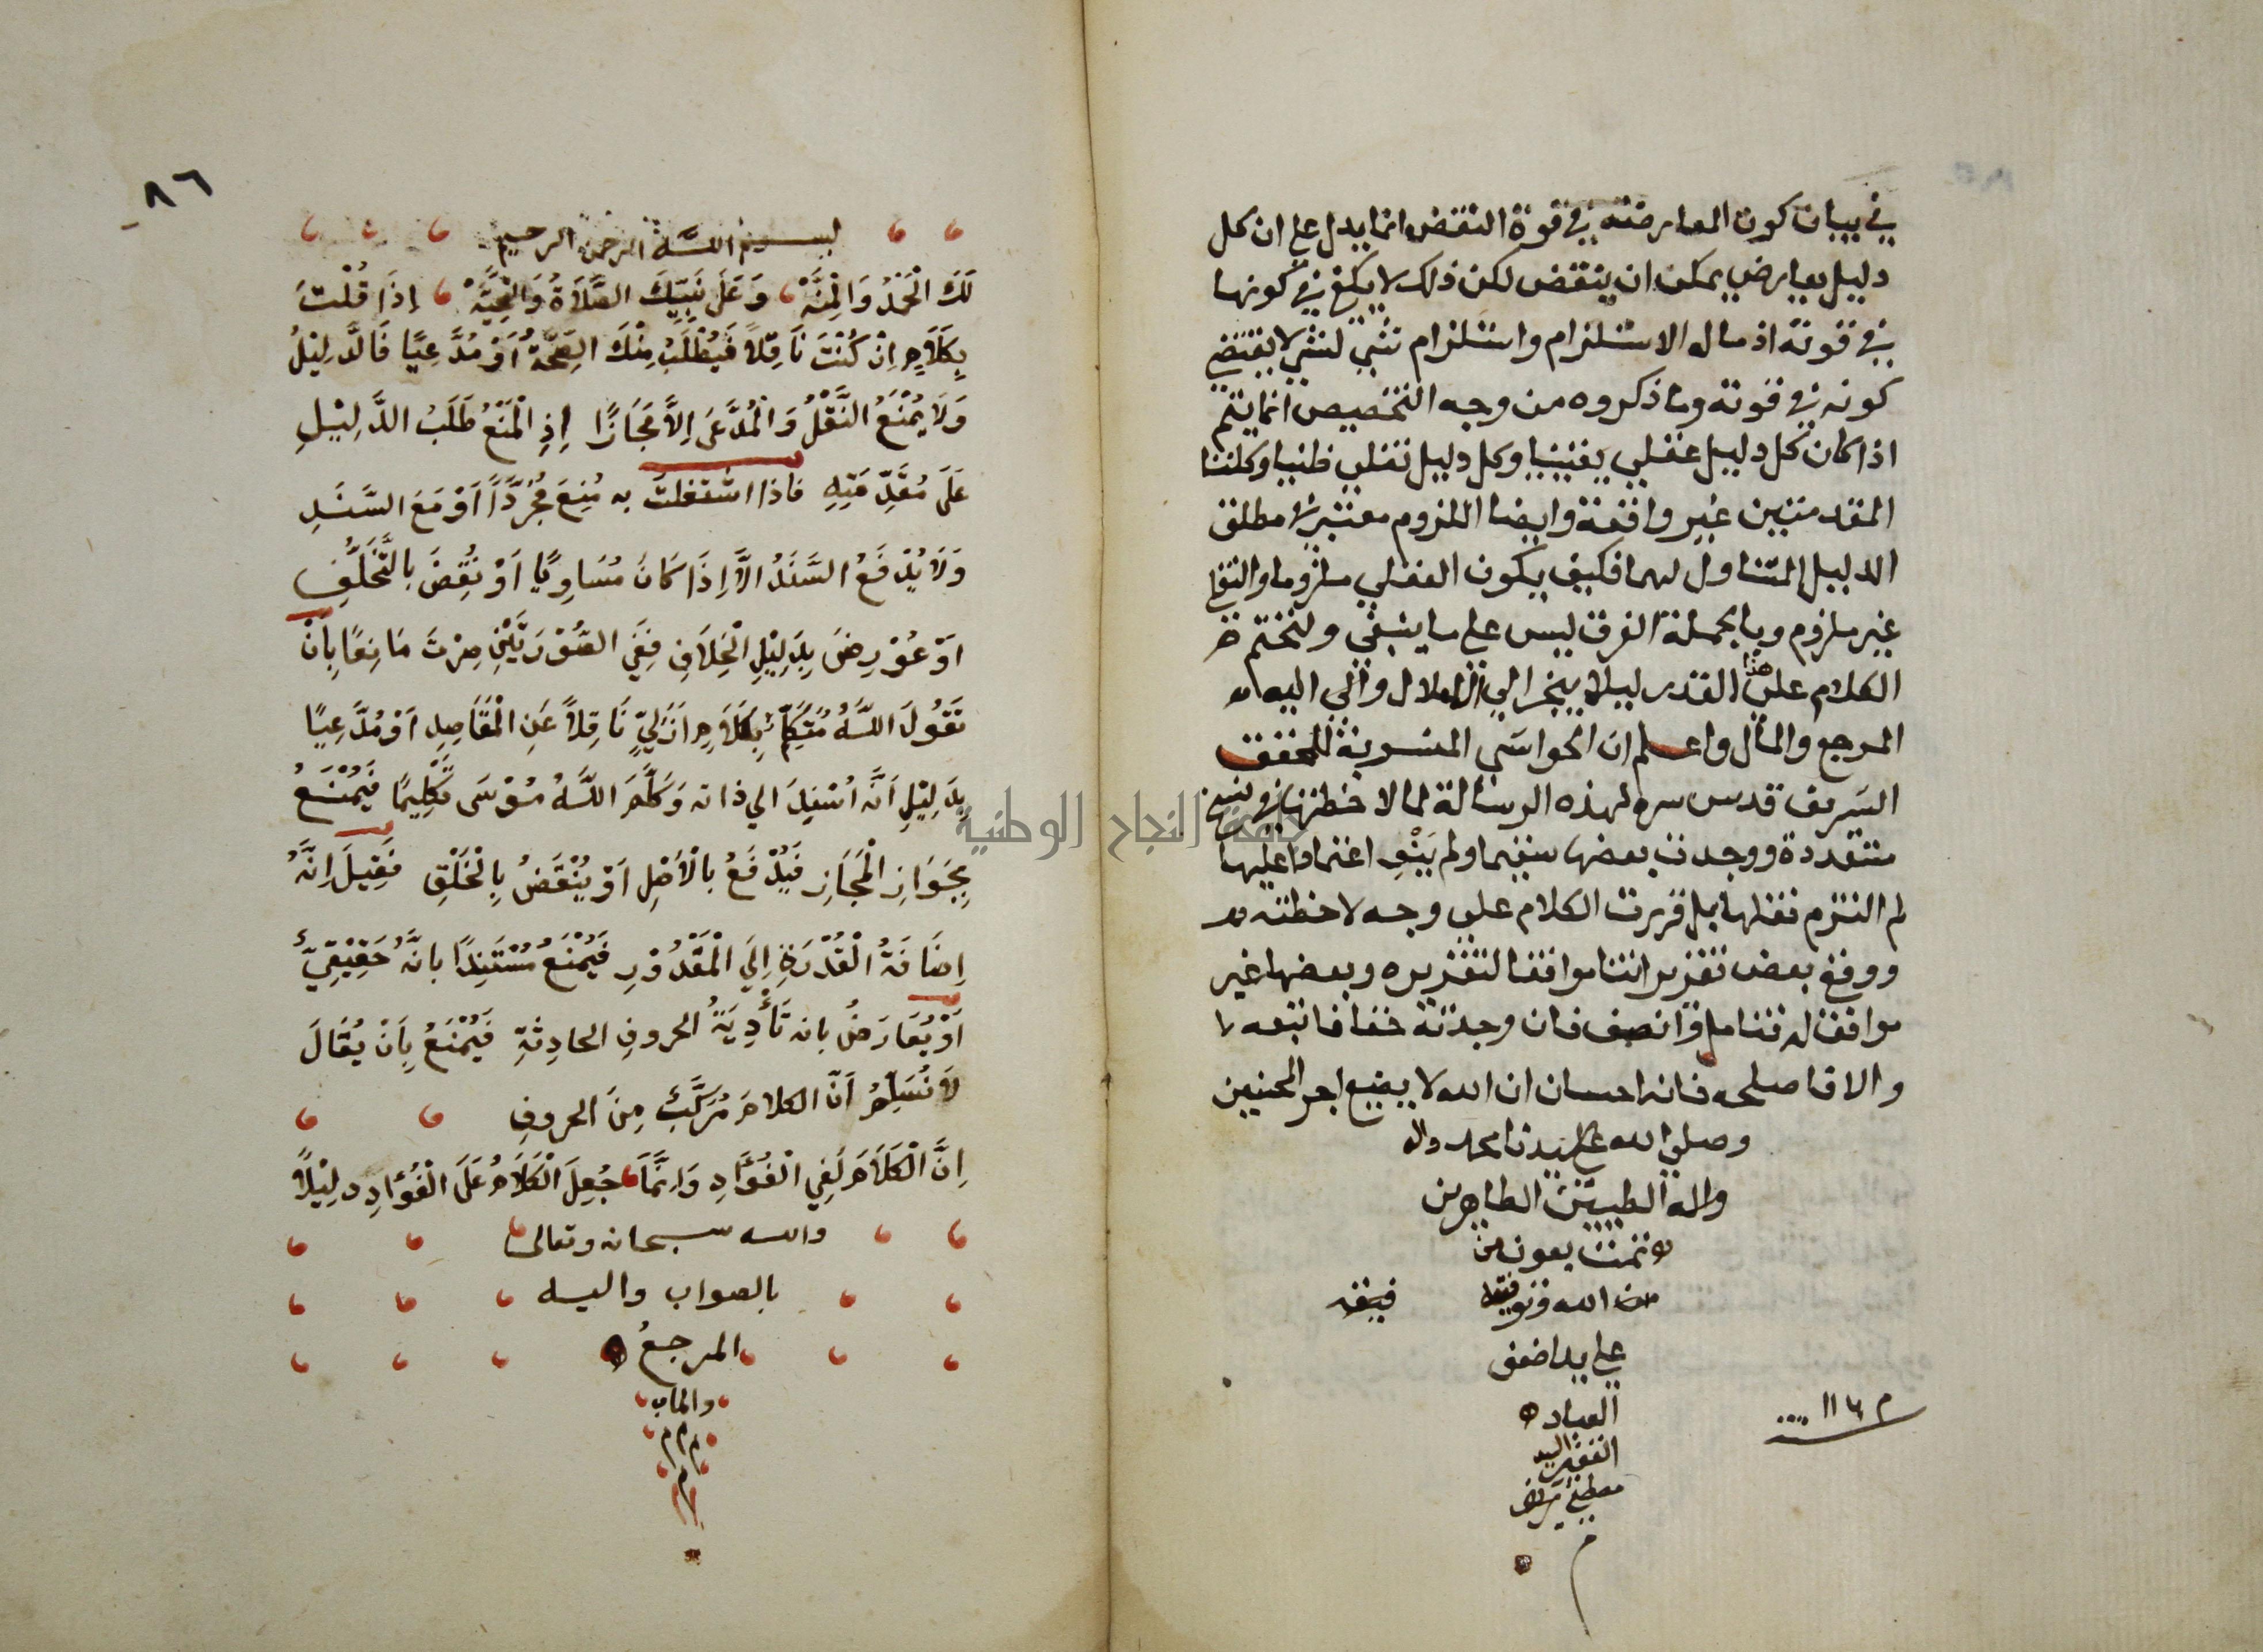 في بيان كون المعارضة في قوة النقض انما يدل على ان كل
دليل يعارض يمكن ان ينتقض لكن ذلك لا يكفي في كونها
في قوته اذ ماله الاستلزام واستلزام شئ لشئ لا يقتضي
كونه في قوته وما ذكروه من وجه التخصيص انما يتم
اذا كان كل دليل عقلي يقينيا وكل دليل نقلي ظنيا وكلتا
المقدمتين غير واقعة وايضا اللزوم معتبر في مطلق
الدليل المتناول لهما فكيف يكون العقلي ملزوما والنقلي
غير ملزوم وبالجملة الفرق ليس على ما ينبغي ولنختم
الكلام على هذا القدر ليلا ينجر الى الاملال والى اليه
المرجع والمأل واعلم ان الحواشى المنسوبة للمحقق
الشريف قدس سره لهذه الرسالة لما لاحظتها في نسخ
متعددة ووجدت بعضها سقيما ولم يَبْقِ اعتمادا عليها
لم التزم نقلها بل قررت الكلام على وجه لاحظته
ووقع بعض تقريراتنا موافقا لتقريره وبعضها غير
موافق له فتامل وانصف فان وجدته حقا فاتبعه
والا فاصلحه فانه احسان ان الله لا يضيع اجر المحسنين
وصلى الله على سيدنا محمد واله
واله الطيبين الطاهرين
تمت بعون من
الله وتوفيقه
على يد اضعف
العباد
الفقير السيد
مصطفى
م ١١٦
٨٦
بسم الله الرحمن الرحيم
لَكَ الْحَمْدُ وَالْمِنَّةْ وَعَلَى نَبِيِّكَ الصَّلَاةُ وَالتَّحِيَّةْ اِذَا قُلْتَ
بِكَلَامٍ اِنْ كُنْتَ نَاقِلاً فَيُطْلَبُ مِنْكَ الصِّحَّةُ اَوْ مُدَّعِيًا فَالدَّلِيْلُ
وَلَا يُمْنَعُ النَّقْلُ وَالْمُدَّعَى اِلاَّ مَجَازًا اِذِ الْمَنْعُ طَلَبُ الدَّلِيْلِ
عَلَى مُقَدِّمَتِهِ فاذا اشْتَغَلْتَ به مُنِعَ مُجَرَّدًا اَوْ مَعَ السَّنَدِ
وَلَا يُدْفَعُ السَّنَدُ الاَّ اِذَا كَانَ مُسَاوِيًا اَوْ نُقِضَ بِالتَّخَلُّفِ
اَوْ عُوْرِضَ بِدَلِيْلِ الْخِلَافِ فَفِي الصُّوْرَتَيْنِ صِرْتَ مَانِعًا بِاَنْ
تَقُولَ اللَّهُ مُتَكَلِّمٌ بِكَلَامٍ اَزَلِيٍّ نَاقِلاً عَنِ الْمَقَاصِدِ اَوْ مُدَّعِيًا
بِدَلِيْلِ اَنَّهُ اُسْنِدَ الي ذاته وَكَلَّمَ اللَّهُ مُوْسَى تَكْلِيمًا فَيُمْنَعُ
بِجَوَازِ الْمَجَازِ فَيُدْفَعُ بِالْاَصْلِ اَوْ يُنْقَضُ بِالْخَلْقِ فَقِيْلَ اِنَّهُ
اِضَافَةُ الْقُدْرَةِ اِلَي الْمَقْدُوْرِ فَيُمْنَعُ مُسْتَنِدًا بانَّهُ حَقِيْقِيٌّ
اَوْ يُعَارَضُ بانه تَأْدِيَةُ الحروفِ الحادِثَةِ فَيُمْنَعُ بِاَنْ يُقَالَ
لَا نُسَلِّمُ اَنَّ الكلامَ مُرَكَّبٌ مِنَ الحروفِ
اِنَّ الْكَلَامَ لَفِي الْفُؤَادِ وَاِنَّمَا جُعِلَ الْكَلَامُ عَلَى الْفُؤَادِ دلِيْلاً
والله سبحانه وتعالى
بالصواب واليه
المرجعُ
والماب
م م م
م
جامعة النجاح الوطنية